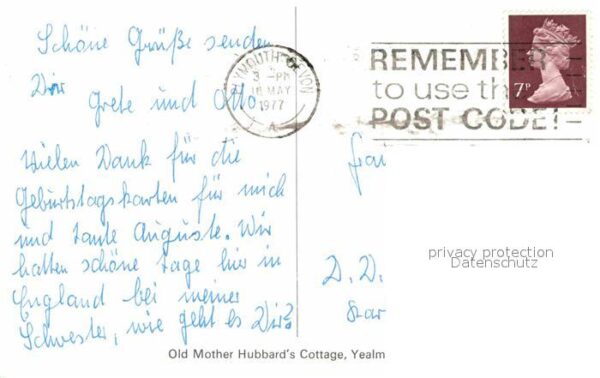 Schöne Grüße senden
Dir
Grete und Otto
Vielen Dank für die
Geburtstagskarten für mich
und Tante Auguste. Wir
hatten schöne Tage hier in
England bei meiner
Schwester, wie geht es Dir?
PLYMOUTH · DEVON
3 - PM
18 MAY
1977
A
REMEMBER
to use the
POST CODE!
7P
Frau
privacy protection
Datenschutz
D. D.
Old Mother Hubbard's Cottage, Yealm